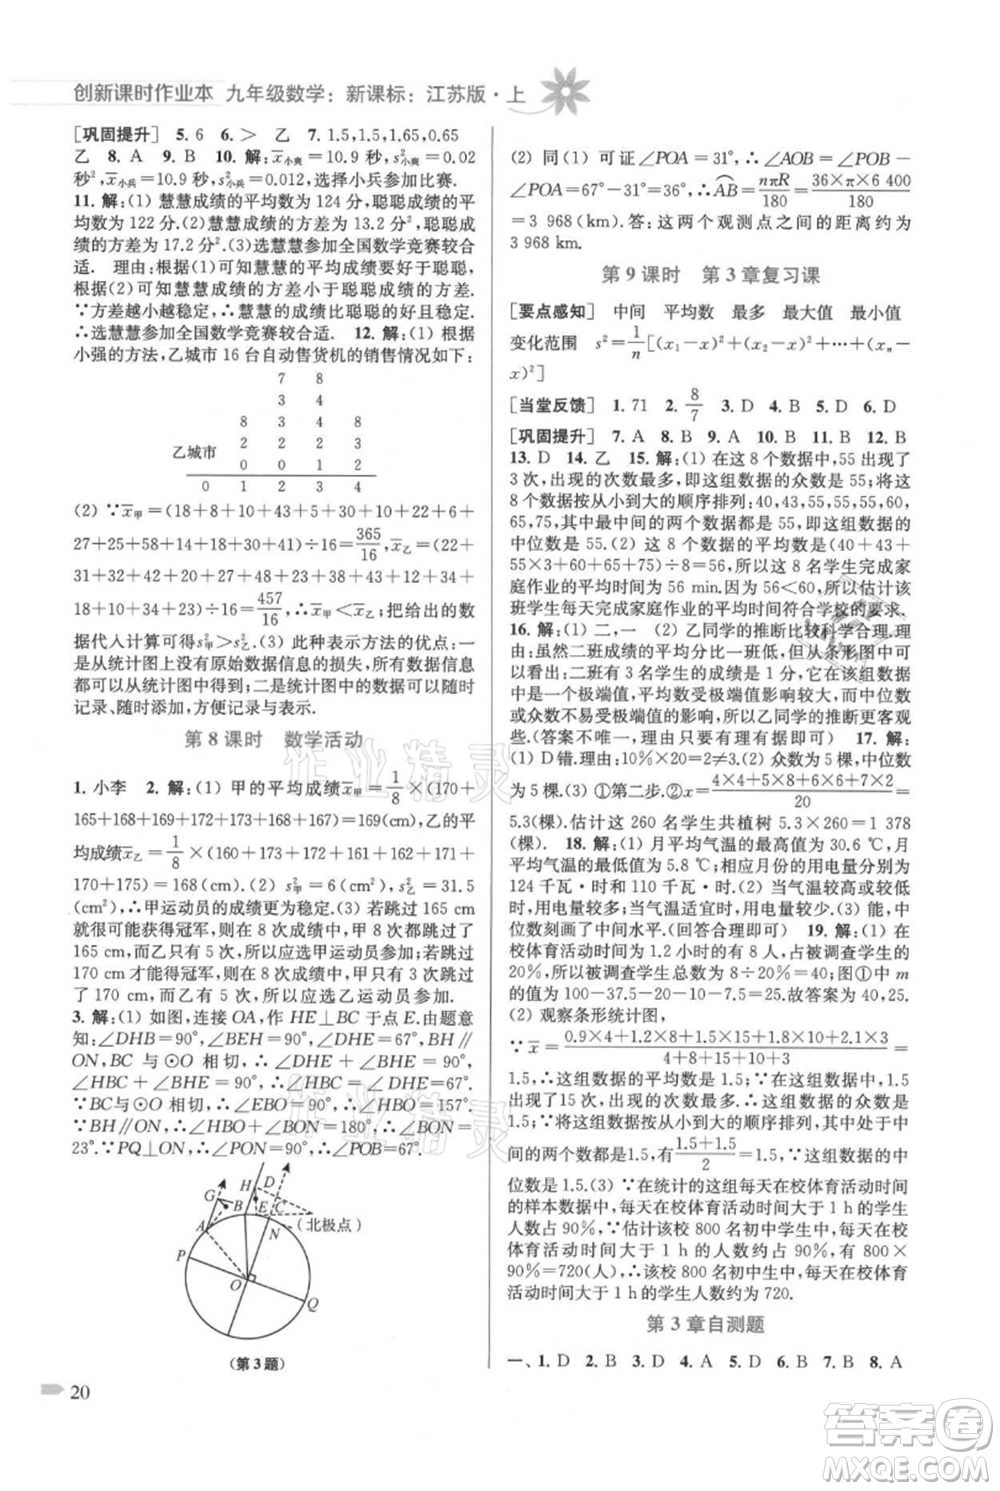 创新课时作业本 九年级数学：新课标：江苏版·上
[巩固提升] 5. 6 6. > 乙 7. 1.5,1.5,1.65,0.65
乙 8. A 9. B 10. 解:x̅小爽=10.9 秒,s²小爽=0.02
秒²,x̅小兵=10.9 秒,s²小兵=0.012,选择小兵参加比赛.
11. 解:(1) 慧慧成绩的平均数为 124 分,聪聪成绩的平
均数为 122 分(2) 慧慧成绩的方差为 13.2 分²,聪聪成
绩的方差为 17.2 分².(3)选慧慧参加全国数学竞赛较合
适 理由:根据(1)可知慧慧的平均成绩高于聪聪,根据
(2)可知慧慧成绩的方差小于聪聪成绩的方差.
∵方差越小越稳定,∴慧慧的成绩比聪聪的好且稳定.
∴选慧慧参加全国数学竞赛较合适. 12. 解:(1) 根据
小强的方法,乙城市 16 台自动售货机的销售情况如下:
7 8
3 4
8 3 4 8
2 2 2 3
乙城市 0 0 1 2
0 1 2 3 4
(2) ∵x̅甲=(18+8+10+43+5+30+10+22+6+
27+25+58+14+18+30+41)÷16=365/16,x̅乙=(22+
31+32+42+20+27+48+23+38+43+12+34+
18+10+34+23)÷16=457/16,∴x̅甲<x̅乙;把给出的数
据代人计算可得s²甲>s²乙.(3) 此种表示方法的优点:一
是从统计图上没有原始数据信息的损失,所有信息都可
以从统计图中得到;二是统计图中的数据可以随时
记录、随时添加,方便记录与表示.
第 8 课时 数学活动
1. 小李 2. 解:(1) 甲的平均成绩x̅甲=1/8×(170+
165+168+169+172+173+168+167)=169(cm),乙的平
均成绩x̅乙=1/8×(160+173+172+161+162+171+
170+175)=168(cm).(2) s²甲=6(cm²),s²乙=31.5
(cm²),∴甲运动员的成绩更为稳定.(3) 若跳过 165 cm
就很可能获得冠军,则在 8 次成绩中,甲 8 次都跳过了
165 cm,而乙只有 5 次,所以应选甲运动员参加;若跳过
170 cm才能得冠军,则在 8 次成绩中,甲只有 3 次都跳
过了 170 cm,而乙有 5 次,所以应选乙运动员参加.
3. 解:(1) 如图,连接 OA,作 HE⊥BC 于点 E.由题意
知:∠DHB=90°,∠BEH=90°,∠DHE=67°,BH∥
ON,BC 与 ⊙O 相切,∴∠DHE+∠BHE=90°,
∠HBC+∠BHE=90°,∴∠HBC=∠DHE=67°.
∵BC与⊙O相切,∴∠EBO=90°,∴∠HBO=157°.
∵BH∥ON,∴∠HBO+∠BON=180°,∴∠BON=
23°.∵PQ⊥ON,∴∠POB+∠BON=90°,∴∠POB=67°.
H D
G B E C
A N (北极点)
P
O
Q
(第 3 题)
20
(2) 同(1)可证∠POA=31°,∴∠AOB=∠POB-
∠POA=67°-31°=36°,∴AB=nπR/180=36×π×6 400/180
=3 968(km).答:这两个观测点之间的距离约为
3 968 km.
第 9 课时 第 3 章复习课
[要点感知] 中间 平均数 最多 最大值 最小值
变化范围 s²=1/n[(x₁-x)²+(x₂-x)²+⋯+(xₙ-
x)²]
[当堂反馈] 1. 71 2. 8/7 3. D 4. B 5. D 6. D
[巩固提升] 7. A 8. B 9. A 10. B 11. B 12. B
13. D 14. 乙 15. 解:(1) 在这 8 个数据中,55 出现了
3 次,出现的次数最多,即这组数据的众数是 55,将这
8 个数据按从小到大的顺序排列:40,43,55,55,55,60,
65,75,其中最中间的两个数据都是 55,即这组数据的
中位数是 55.(2) 这 8 个数据的平均数是(40+43+
55×3+60+65+75)÷8=56,所以这 8 名学生完成家
庭作业的平均时间为 56 min.因为56<60,所以估计该
班学生每天完成家庭作业的平均时间符合学校的要求.
16. 解:(1) 二,一 (2) 乙同学的推断比较科学合理.理
由:虽然二班成绩的平均分比一班低,但从条形图中可
以看出,二班有 3 名学生的成绩是 1 分,它在该组数据
中是一个极端值,平均数受极端值影响较大,而中位数
或众数受极端值影响较小,所以乙同学的推断更客观
些.(答案不唯一,合理均可) 17. 解:
(1) D错误.理由:20×10%=2≠3.(2) 众数为 5 棵,中位数
为 5 棵.(3) ①第二步.②x̅=4×4+5×8+6×6+7×2/20=
5.3(棵).估计这 260 名学生共植树 5.3×260=1 378
(棵). 18. 解:(1) 月平均气温的最高值为 30.6 ℃,月
平均气温的最低值为 5.8 ℃;相应月份的用电量分别为
124 千瓦·时和 110 千瓦·时.(2) 当气温较高或较低
时,用电量较多;当气温适宜时,用电量较少.(3) 能,中
位数刻画了中间水平.(回答合理即可) 19. 解:(1) 在
校体育活动时间为 1.2 小时的有 8 人,占被调查学生总
数的20%,所以被调查学生总数为 8÷20%=40,图①中 m
的值为100-37.5-20-10-7.5=25.故答案为40,25.
(2) 观察条形统计图,
∵x̅=0.9×4+1.2×8+1.5×15+1.8×10+2.1×3/4+8+15+10+3=
1.5,∴这组数据的平均数是 1.5.∵在这组数据中,1.5
出现了15次,出现的次数最多,∴这组数据的众数为
1.5.∵将这组数据按从小到大的顺序排列,其中处于中
间的两个数都是1.5,有1.5+1.5/2=1.5,∴这组数据的中
位数是 1.5.(3) ∵在统计的这组每天在校体育活动时间
的样本数据中,每天在校体育活动时间大于 1 h 的学生
人数占 90%,∴估计该校 800 名初中学生每天在校
体育活动时间大于 1 h 的人数约占 90%,∴800×
90%=720(人),∴该校 800 名初中学生中,每天在校体育
活动时间大于 1 h 的学生人数约为 720.
第 3 章自测题
一、1. D 2. B 3. D 4. D 5. B 6. D 7. B 8. A
作业精灵
作业精灵
答案圈
MXQE.COM